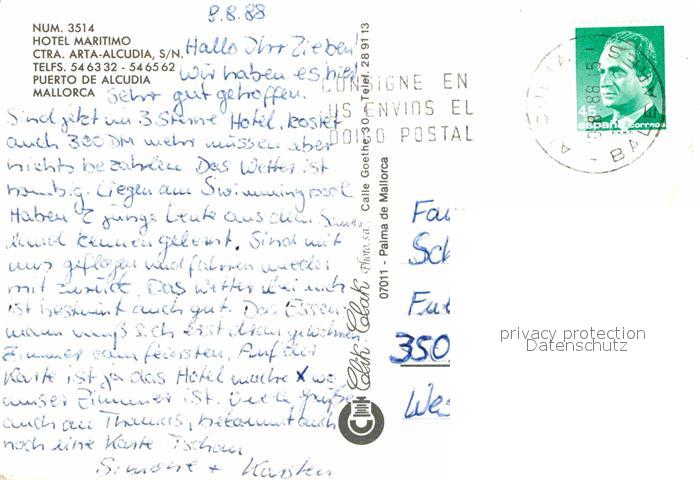 8.8.88
NUM. 3514
HOTEL MARITIMO
CTRA. ARTA-ALCUDIA, S/N.
TELFS. 54 63 32 - 54 65 62
PUERTO DE ALCUDIA
MALLORCA
Hallo Ihr Lieben!
Wir haben es hier
sehr gut getroffen.
Sind jetzt im 3 Sterne Hotel, kostet
auch 300 DM mehr müssen aber
nichts bezahlen. Das Wetter ist
bombig. Liegen am Swimmingpool
Haben 2 junge Leute aus dem
kennen gelernt. Sind mit
uns geflogen und fahren wieder
mit zurück. Das Wetter bei euch
ist bestimmt auch gut. Das Essen
man muß sich erst dran gewöhnen
Zimmer vom feinsten. Auf der
Karte ist ja das Hotel mache X wo
unser Zimmer ist. Grüße
auch an Thomas, bekommt auch
noch eine Karte Tschau
Simone + Karsten
CONSIGNE EN
US ENVIOS EL
CODIGO POSTAL
45
españa correos
BALEARES
Clik-Clak Photo, s.a. Calle Goethe, 30 - Telef. 28 91 13
07011 - Palma de Mallorca
Fa
Sch
350
We
privacy protection
Datenschutz